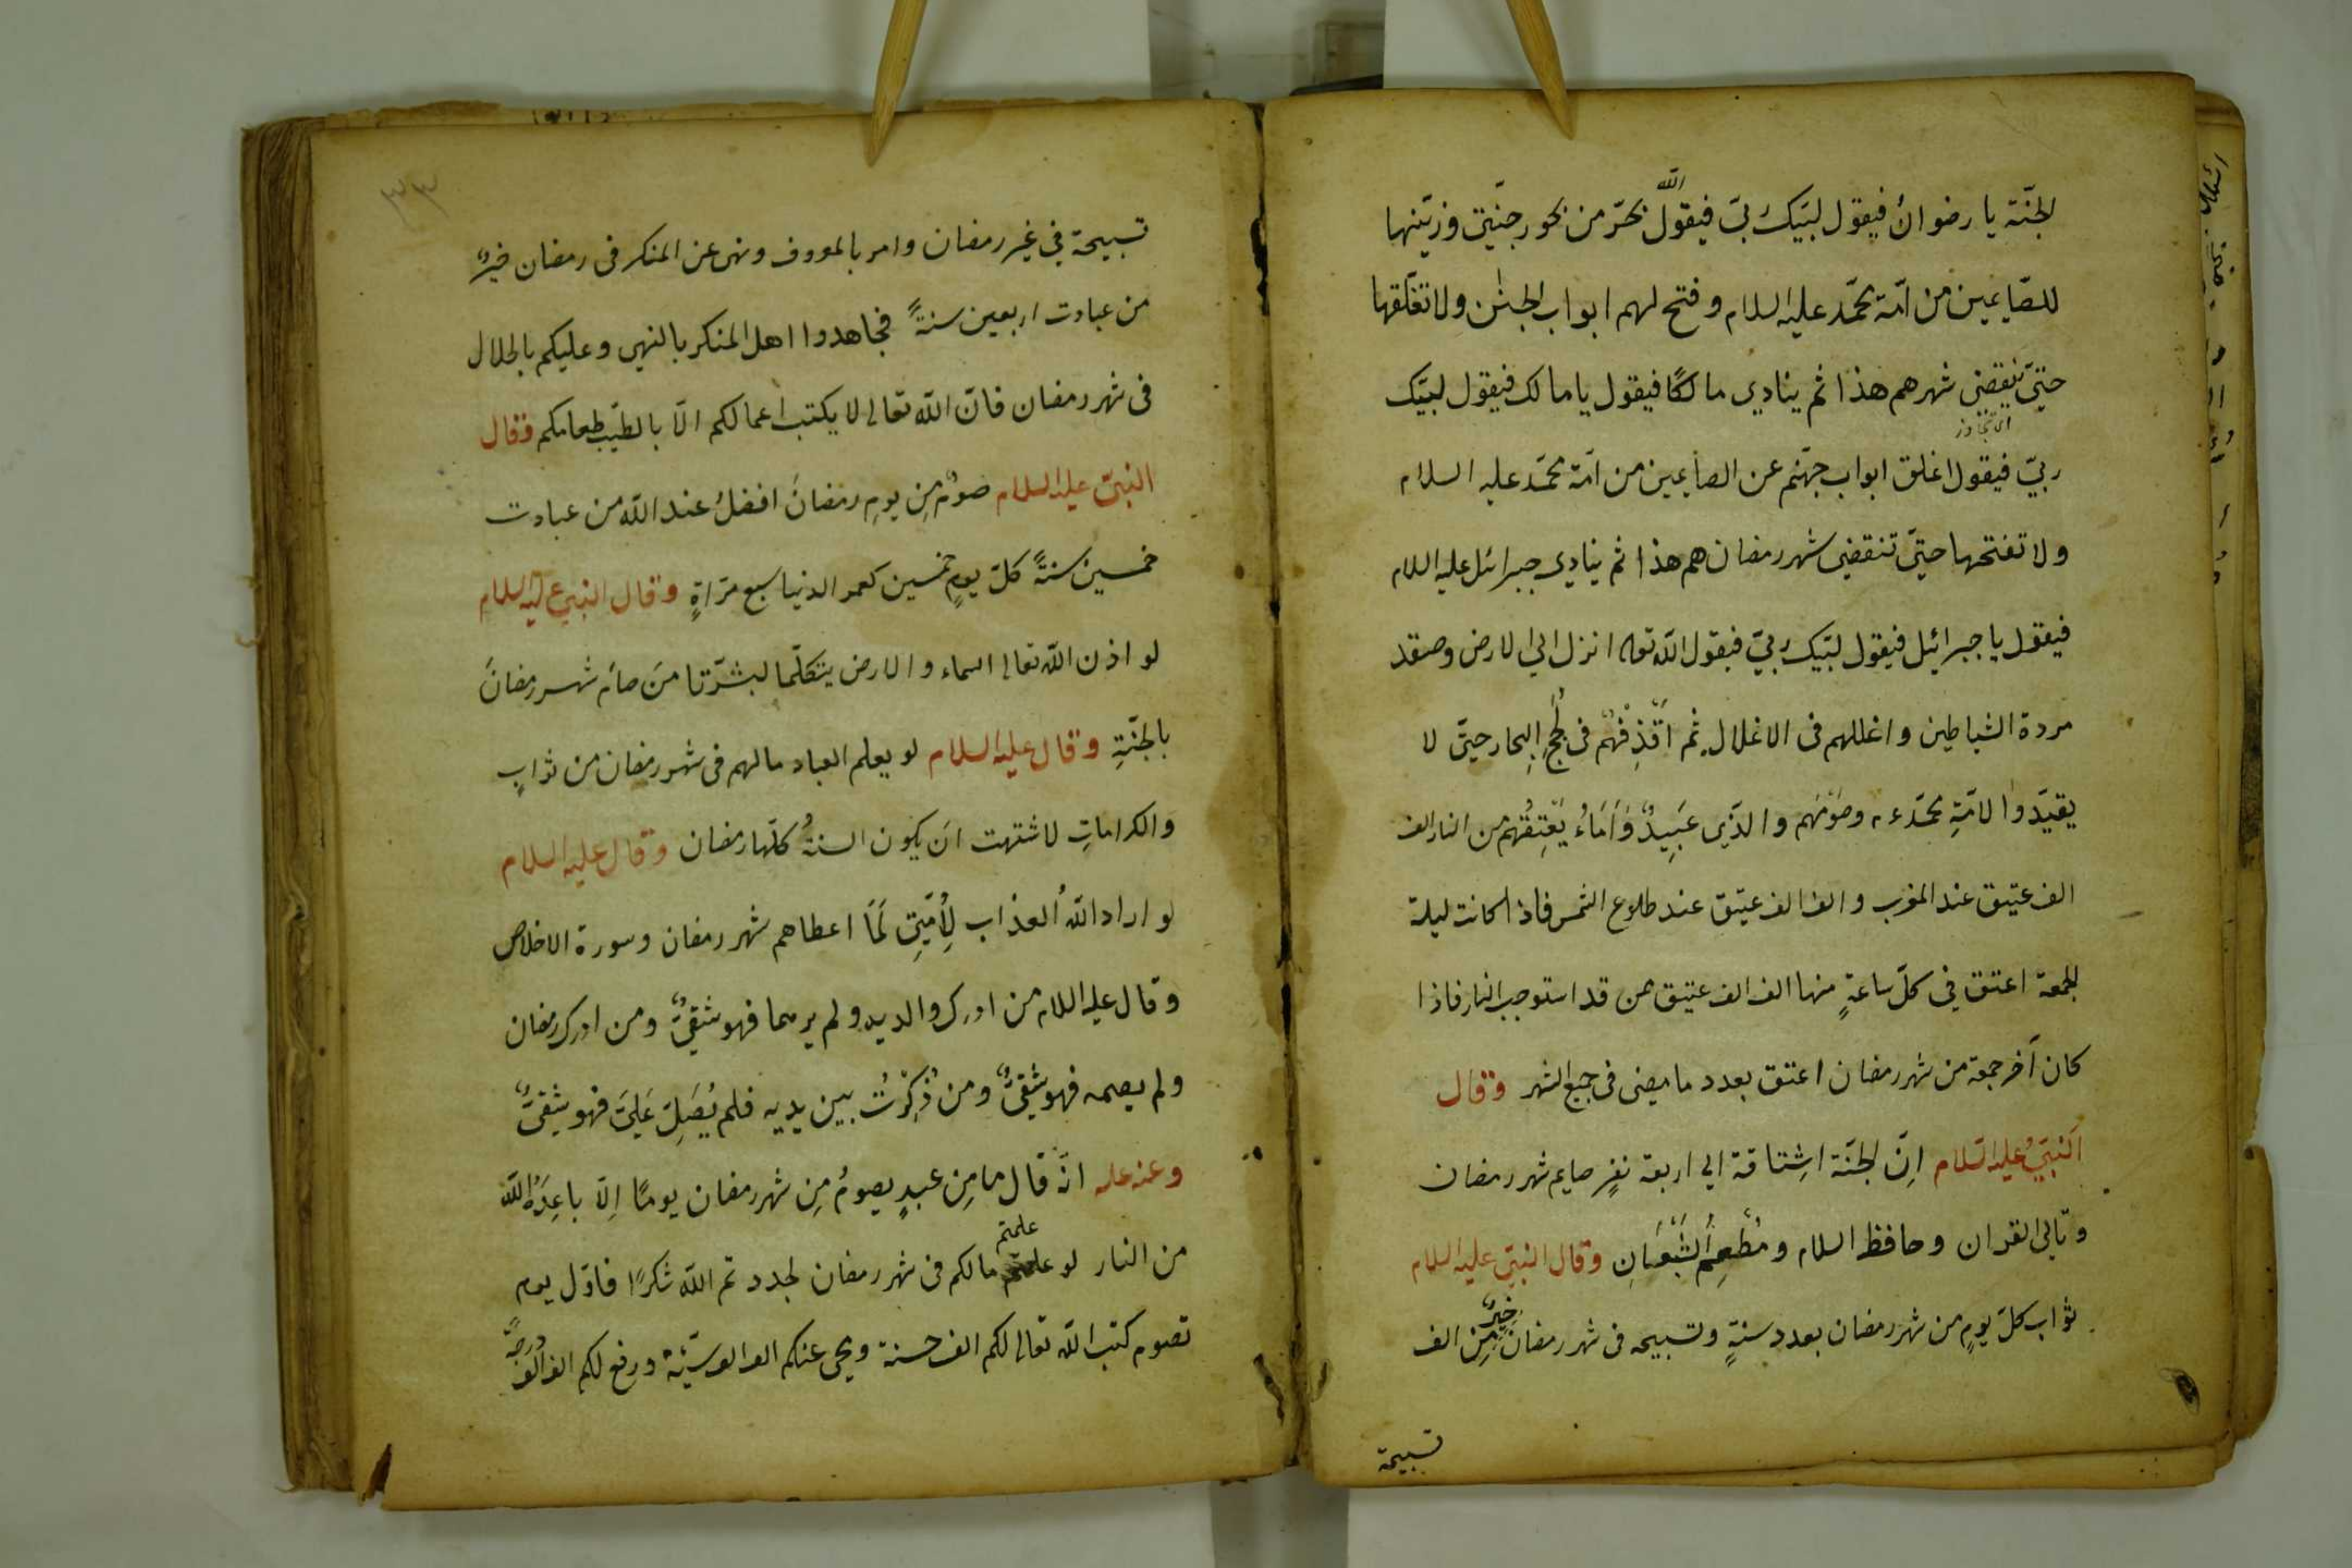 الجنّة يا رضوان فيقول لبّيك ربّي فيقول الله بخّر من بخور جنّتي وزيّنها
للصّايمين من امّة محمّد عليه السلام وفتح لهم ابواب الجنٰن ولا تغلّقها
حتيّ تنقضي شهرهم هذا ثم ينادي مالكًا فيقول يا مالك فيقول لبيّك
ربيّ فيقول اغلق ابواب جهنّم عن الصايمين من امّة محمّد عليه السلام
ولا تفتحها حتيّ تنقضي شهر رمضان هم هذا ثم ينادي جبرائل عليه السلام
فيقول يا جبرائيل فيقول لبّيك ربيّ فيقول الله تعه انزل الي الارض وصفد
مردة الشياطين واغللهم في الاغلال ثم اقْذِفْهُم في لُجج البِحار حتيّ لا
يقيّدوا لامّةِ محمّد عم وصَوْمَهم والذّي عَبِيدٌ وَاَمَاءُ يُعْتِقُهم من النار الف
الف عتيق عند المغرب والف الف عتيق عند طلوع الشمس فاذا كانت ليلة
الجمعة اعتق في كلّ ساعةٍ منها الف الف عتيق من قد استوجب النار فاذا
كان آخر جمعة من شهر رمضان اعتق بعدد ما مضي في جميع الشهر وقال
اَلنبيُّ عليه السّلام اِنّ الجنّة اشِتاقة الي اربعة نفرٍ صايم شهر رمضان
وتالي القران وحافظ السلام ومُطْعِم الشَبْعَانِ وقال النبيّ عليه السلام
ثواب كلّ يومٍ من شهر رمضان بعدد سنةٍ وتسبيحه في شهر رمضان خيرٌ مِن الف
تسبيحة
٣٣
تسبيحة في غير رمضان وامر بالمعروف ونهي عن المنكر في رمضان خيرٌ
من عبادت اربعين سنةً فجاهدوا اهل المنكر بالنهي وعليكم بالحلال
في شهر رمضان فانّ الله تعالي لا يكتب اعمالكم الّا بالطيّب طعامكم وقال
النبيّ عليه السلام صومٌ مِن يومِ رمضانَ افضلُ عند الله من عبادت
خمسين سنةً كلّ يومٍ خمسين كعمر الدنيا سبع مرّاةٍ وقال النبي عليه السلام
لو اذن الله تعالي السماء والارض يتكلّما لبشّرتا مَن صائم شهر رمضانَ
بالجنّةِ وقال عليه السلام لو يعلم العباد ما لهم في شهر رمضان من ثوابٍ
والكراماتِ لاشتهت ان يكون السنةُ كلّها رمضان وقال عليه السلام
لو اراد اللهُ العذاب لِأُمَّتِي لَمَا اعطاهم شهر رمضان وسورة الاخلاص
وقال عليه السلام من ادرك والديه ولم يرهما فهو شقيٌّ ومن ادرك رمضان
ولم يصمه فهو شقيٌّ ومن ذُكِرْتُ بين يديه فلم يُصَلِّ عَلَيَّ فهو شقيٌّ
وعنه عليه انّه قال ما مِن عبدٍ يصومُ مِن شهر رمضان يومًا اِلّا باعَدَهُ الله
من النار لو علمتم ما لكم في شهر رمضان لجددتم الله شكرًا فاوّل يوم
تصوم كتب الله تعالي لكم الف حسنة ويمحي عنكم الف الف سيّئة ورفع لكم الف الف درجةً